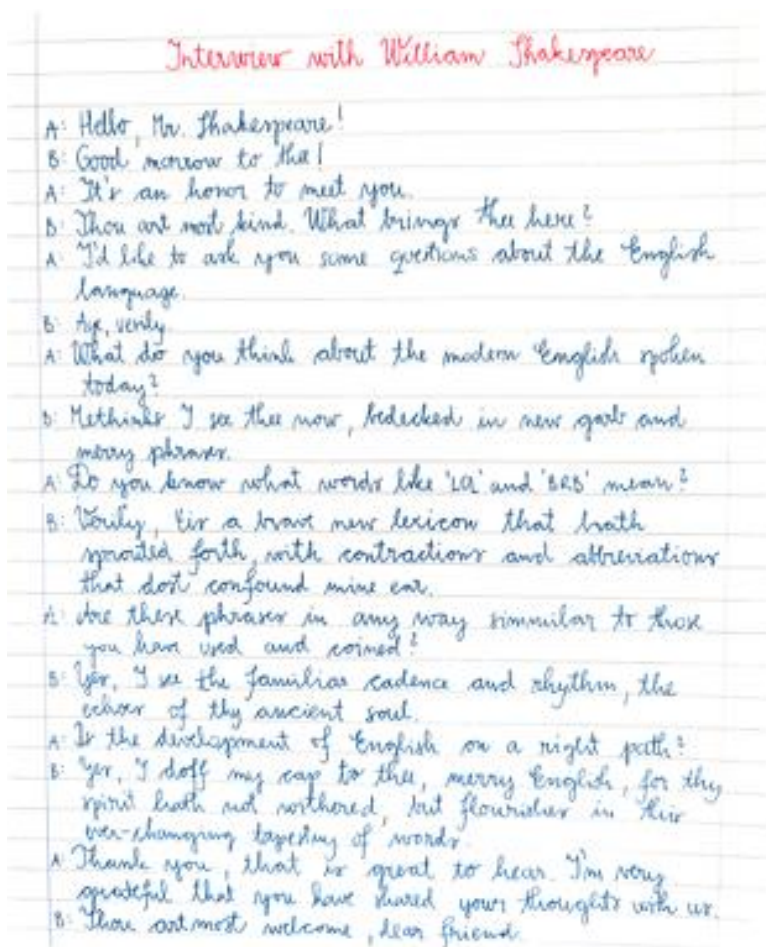 Interview with William Shakespeare
A: Hello, Mr. Shakespeare!
B: Good morrow to thee!
A: It's an honor to meet you.
B: Thou art most kind. What brings thee here?
A: I'd like to ask you some questions about the English
language.
B: Aye, verily.
A: What do you think about the modern English spoken
today?
B: Methinks I see thee now, bedecked in new garb and
merry phrases.
A: Do you know what words like 'LOL' and 'BRB' mean?
B: Verily, tis a brave new lexicon that hath
sprouted forth, with contractions and abbreviations
that dost confound mine ear.
A: Are these phrases in any way simmilar to those
you have used and coined?
B: Yes, I see the familiar cadence and rhythm, the
echoes of thy ancient soul.
A: Is the development of English on a right path?
B: Yes, I doff my cap to thee, merry English, for thy
spirit hath not withored, but flourishes in this
ever-changing tapestry of words.
A: Thank you, that is great to hear. I'm very
grateful that you have shared your thoughts with us.
B: Thou art most welcome, dear friend.